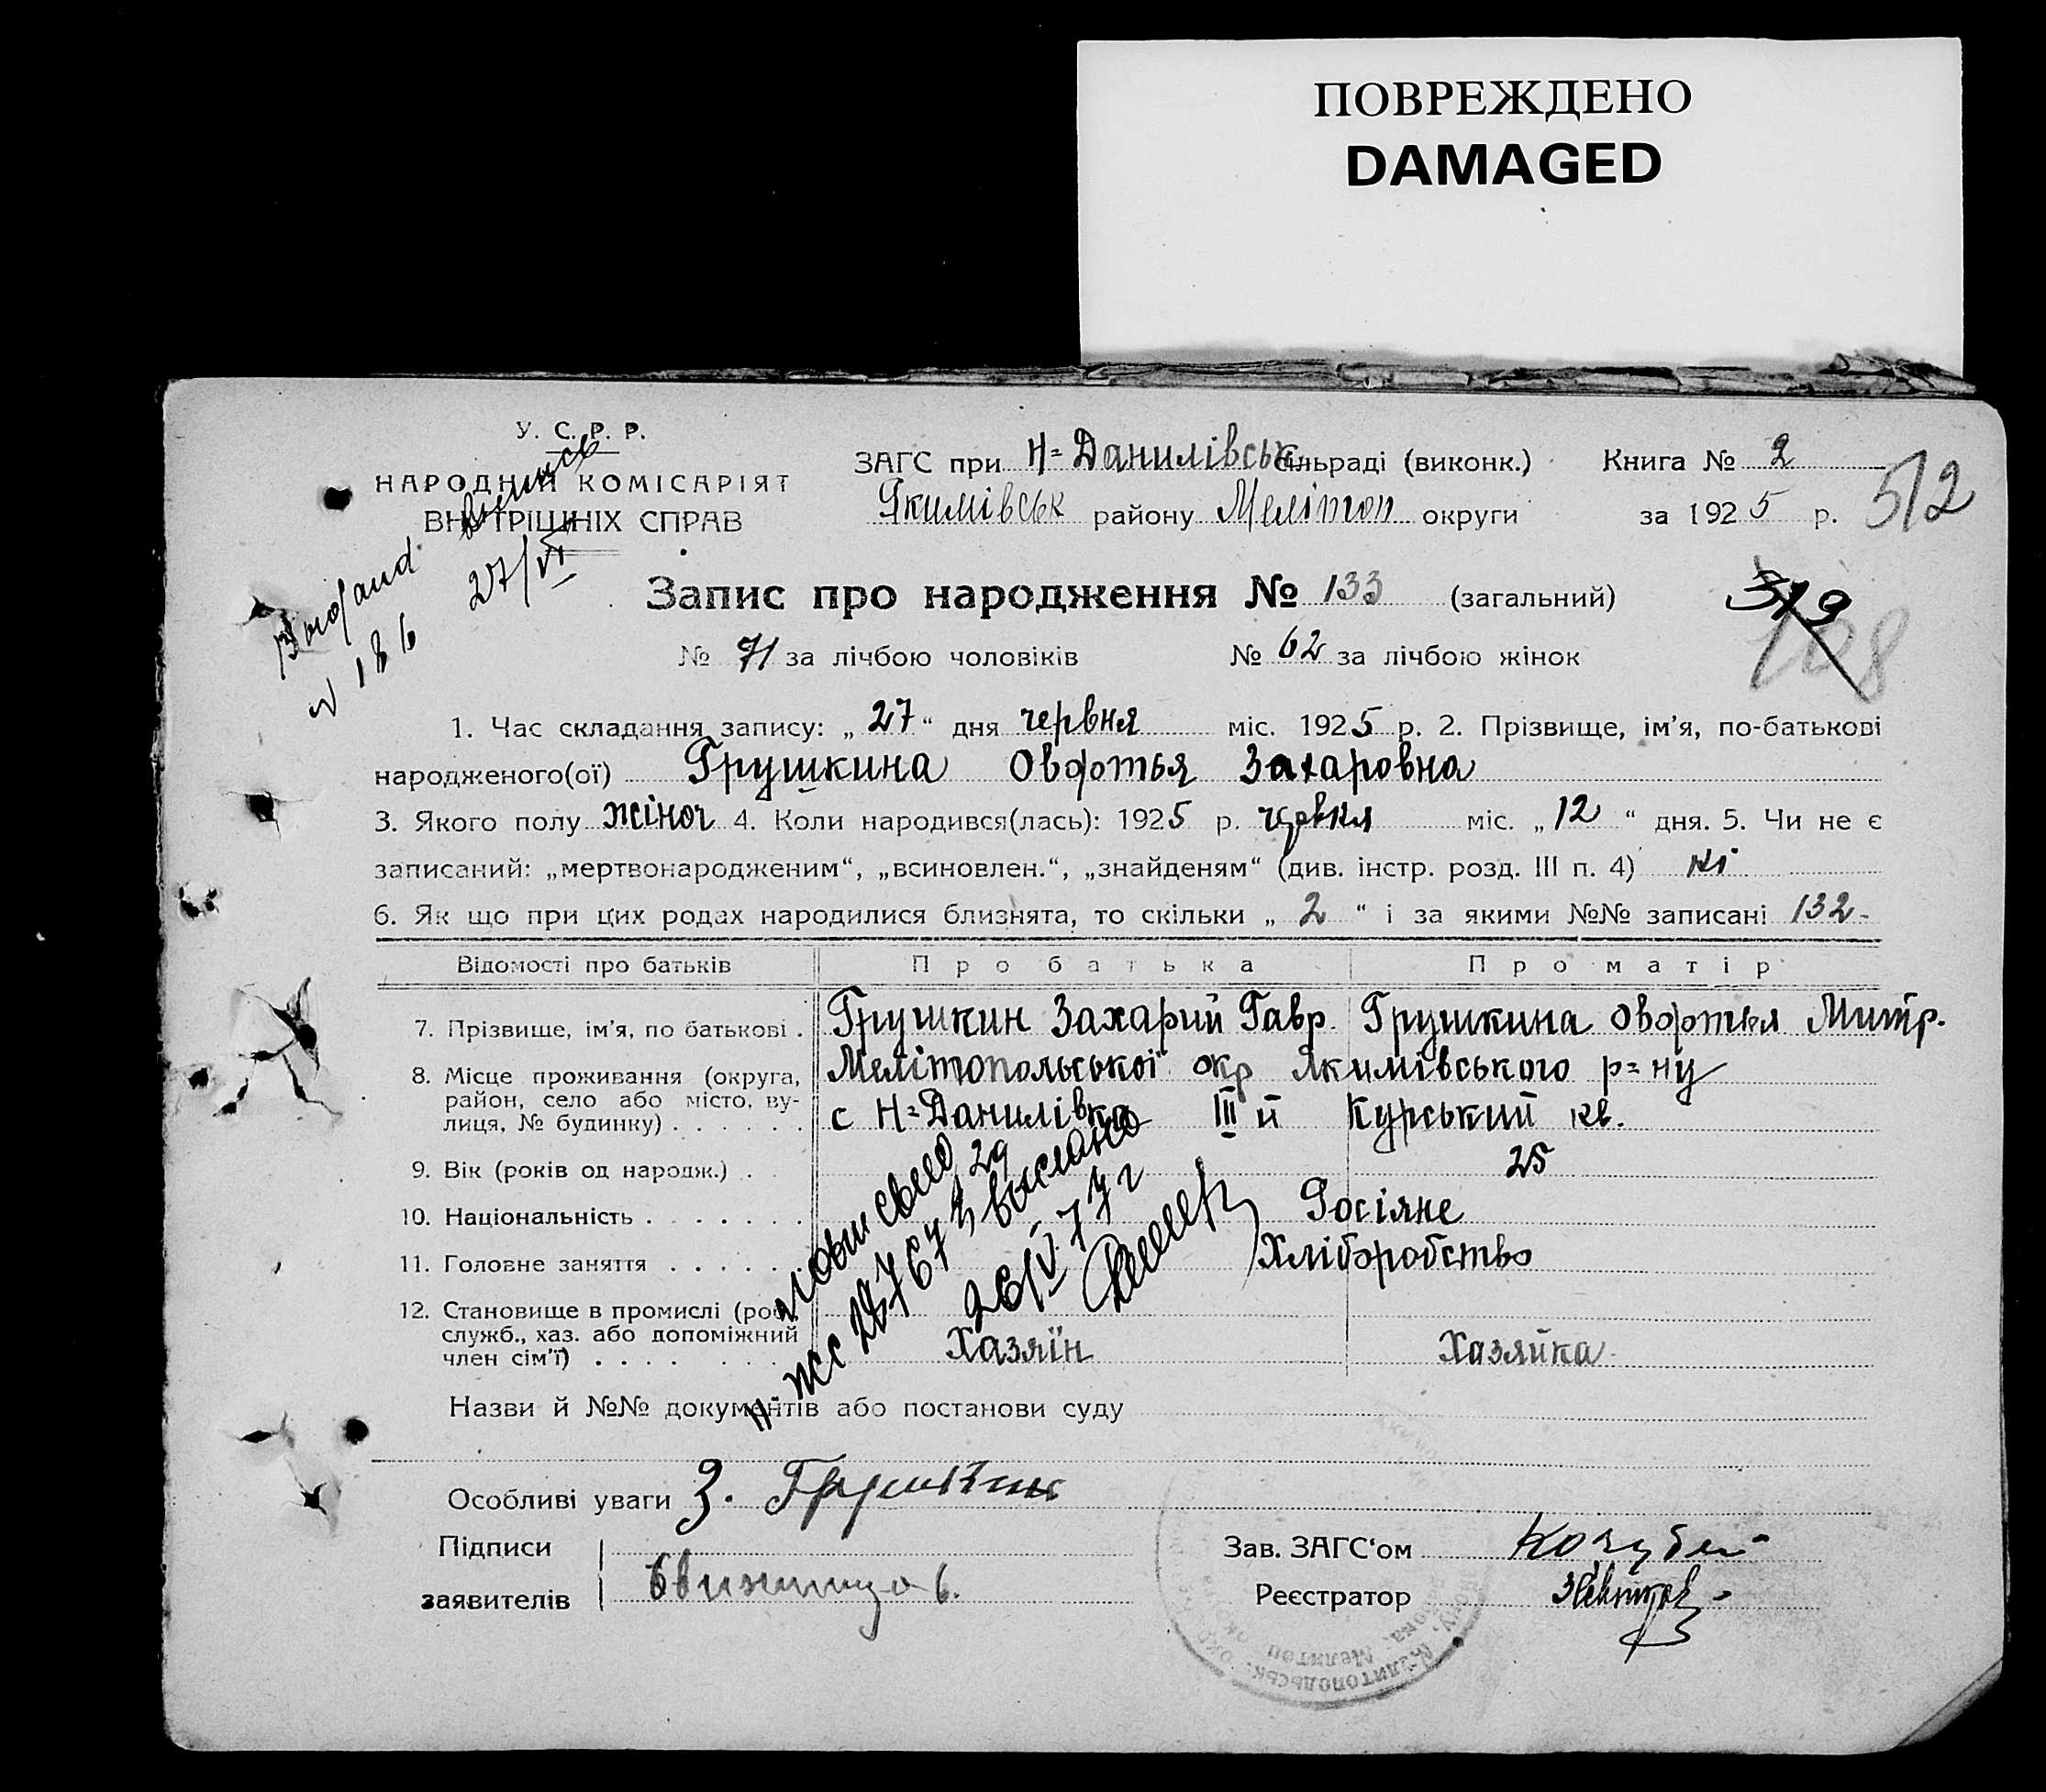 ПОВРЕЖДЕНО
DAMAGED
У. С. Р. Р.
НАРОДНІЙ КОМІСАРІЯТ
ВНУТРІШНІХ СПРАВ
27/VI
N 186
ЗАГС при Н=Данилівськ сільраді (виконк.)
Якимівськ району Мелітоп округи
Книга № 2
за 1925 р.
512
Запис про народження № 133 (загальний)
319
108
№ 71 за лічбою чоловіків № 62 за лічбою жінок
1. Час складання запису: „27“ дня червня міс. 1925 р. 2. Прізвище, ім'я, по-батькові
народженого(ої) Грушкина Овфотья Захаровна
3. Якого полу жіноч 4. Коли народився(лась): 1925 р. червня міс. „12“ дня. 5. Чи не є
записаний: „мертвонародженим“, „всиновлен.“, „знайденям“ (див. інстр. розд. III п. 4) ні
6. Як що при цих родах народилися близнята, то скільки „2“ і за якими №№ записані 132-
Відомості про батьків Про батька Про матір
7. Прізвище, ім'я, по батькові . Грушкин Захарий Гавр. Грушкина Овфотья Митр.
8. Місце проживання (округа, район, село або місто, вулиця, № будинку) . . . . . . Мелітопольської окр Якимівського р=ну
с Н=Данилівка III й Курський кв.
9. Вік (років од народж.) . . 29 25
10. Національність . . . . . . . Росіяне
11. Головне заняття . . . . . . Хліборобство
12. Становище в промислі (роб., служб., хаз. або допоміжний член сім'ї) . . . . Хазяїн Хазяйка
26/V 77 г
Назви й №№ документів або постанови суду
Особливі уваги З. Грушкин
Підписи
заявителів
Зав. ЗАГС'ом Кочубей
Реєстратор